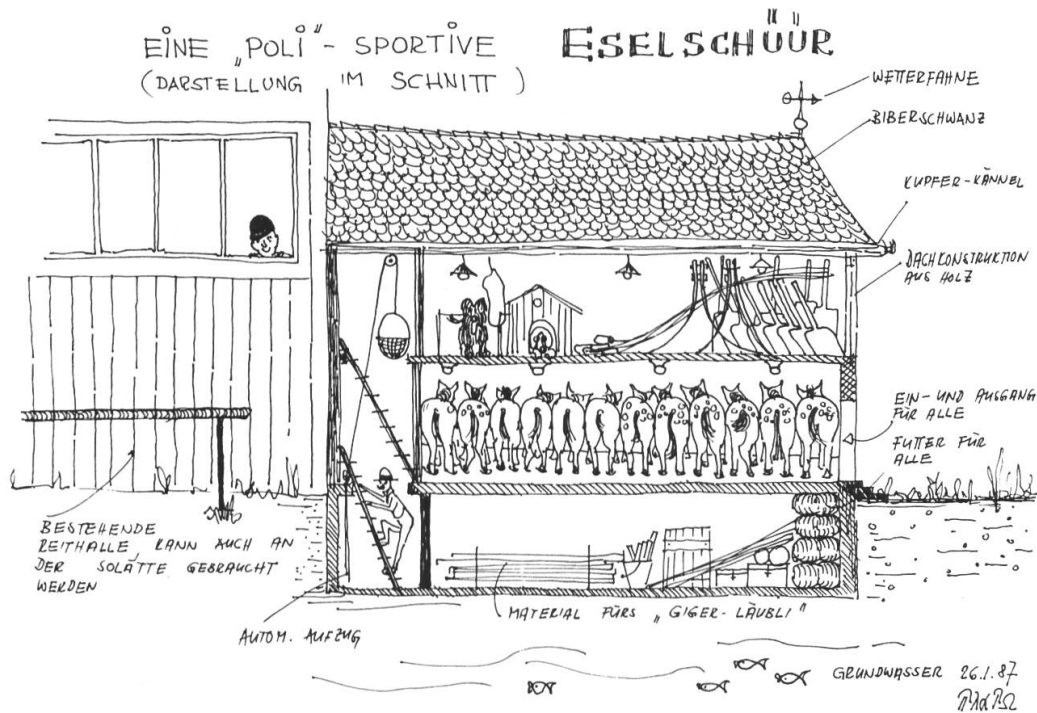 EINE „POLI"-SPORTIVE
(DARSTELLUNG IM SCHNITT)
ESELSCHÜÜR
WETTERFAHNE
BIBERSCHWANZ
KUPFER-KÄNNEL
DACHKONSTRUKTION
AUS HOLZ
EIN- UND AUSGANG
FÜR ALLE
FUTTER FÜR
ALLE
BESTEHENDE
REITHALLE, KANN AUCH AN
DER SOLÄTTE GEBRAUCHT
WERDEN
AUTOM. AUFZUG
MATERIAL FÜRS „GIGER-LÄUBLI"
GRUNDWASSER 26.1.87